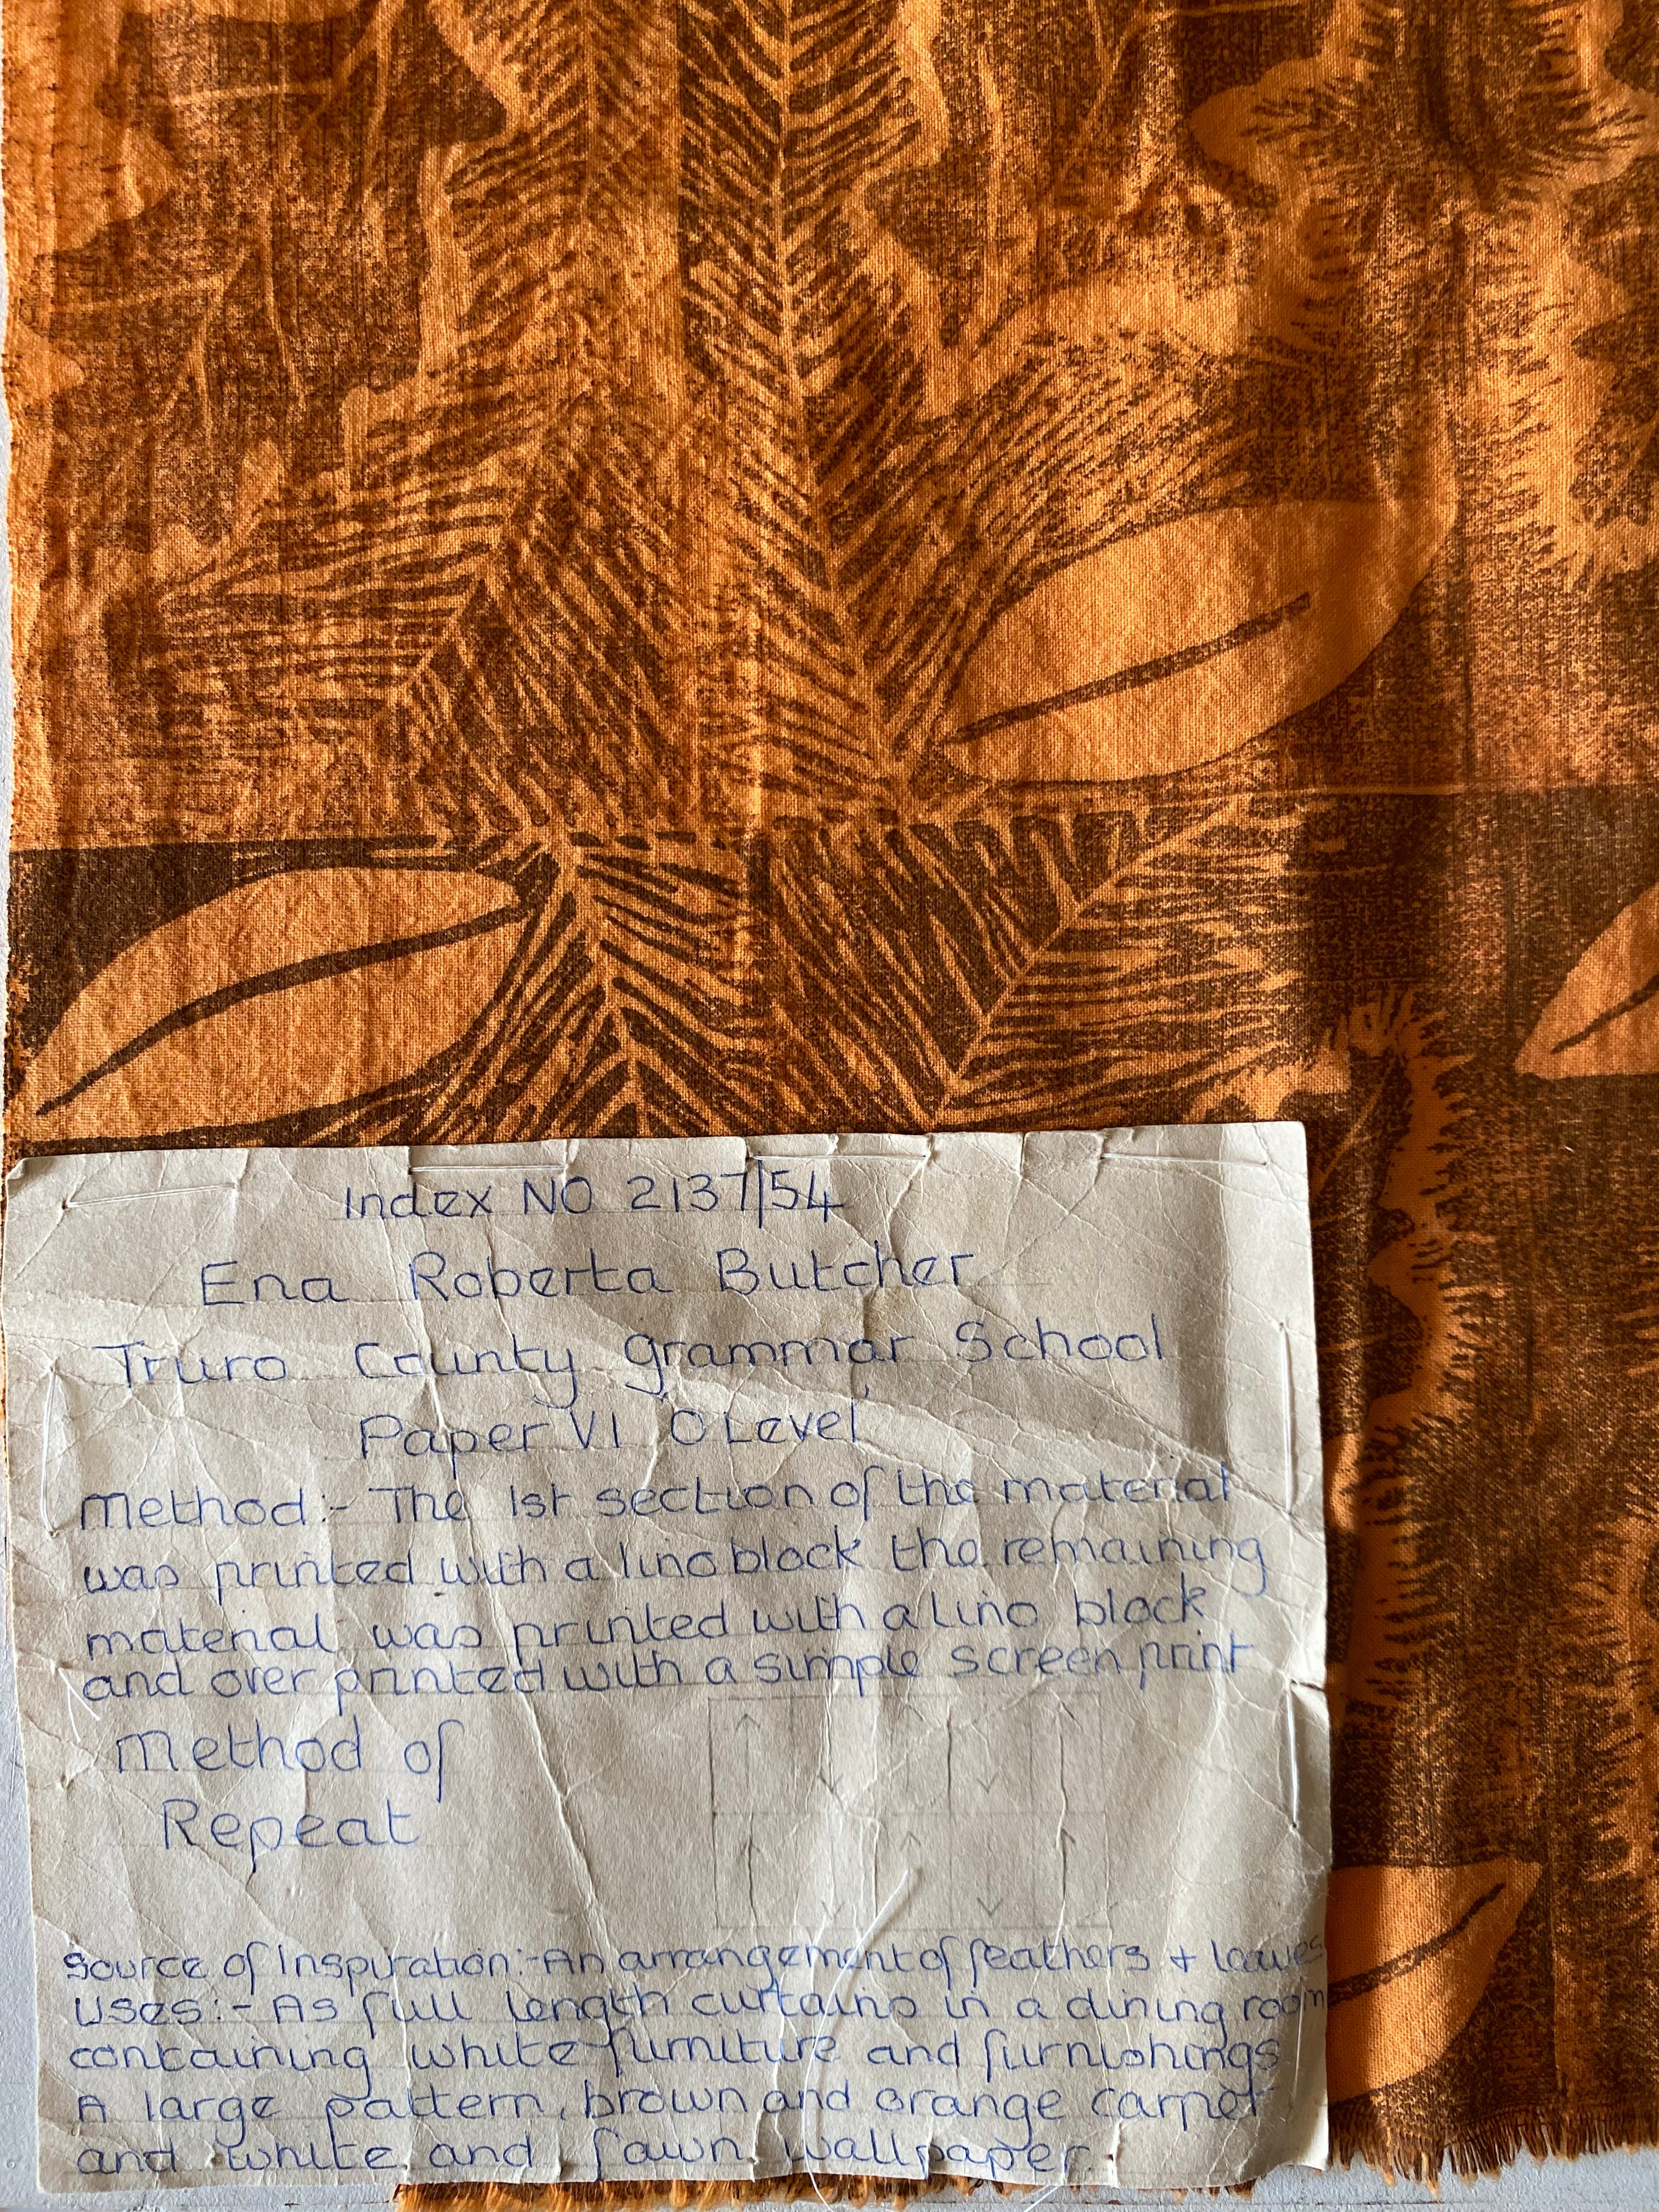 Index NO 2137/54
Ena Roberta Butcher
Truro County Grammar School
Paper VI 'O Level'
Method:- The 1st section of the material
was printed with a lino block the remaining
material was printed with a lino block
and over printed with a simple screen print
Method of
Repeat
Source of Inspiration:- An arrangement of feathers + leaves
Uses:- As full length curtains in a dining room
containing white furniture and furnishings
A large pattern, brown and orange carpet
and white and fawn wallpaper.